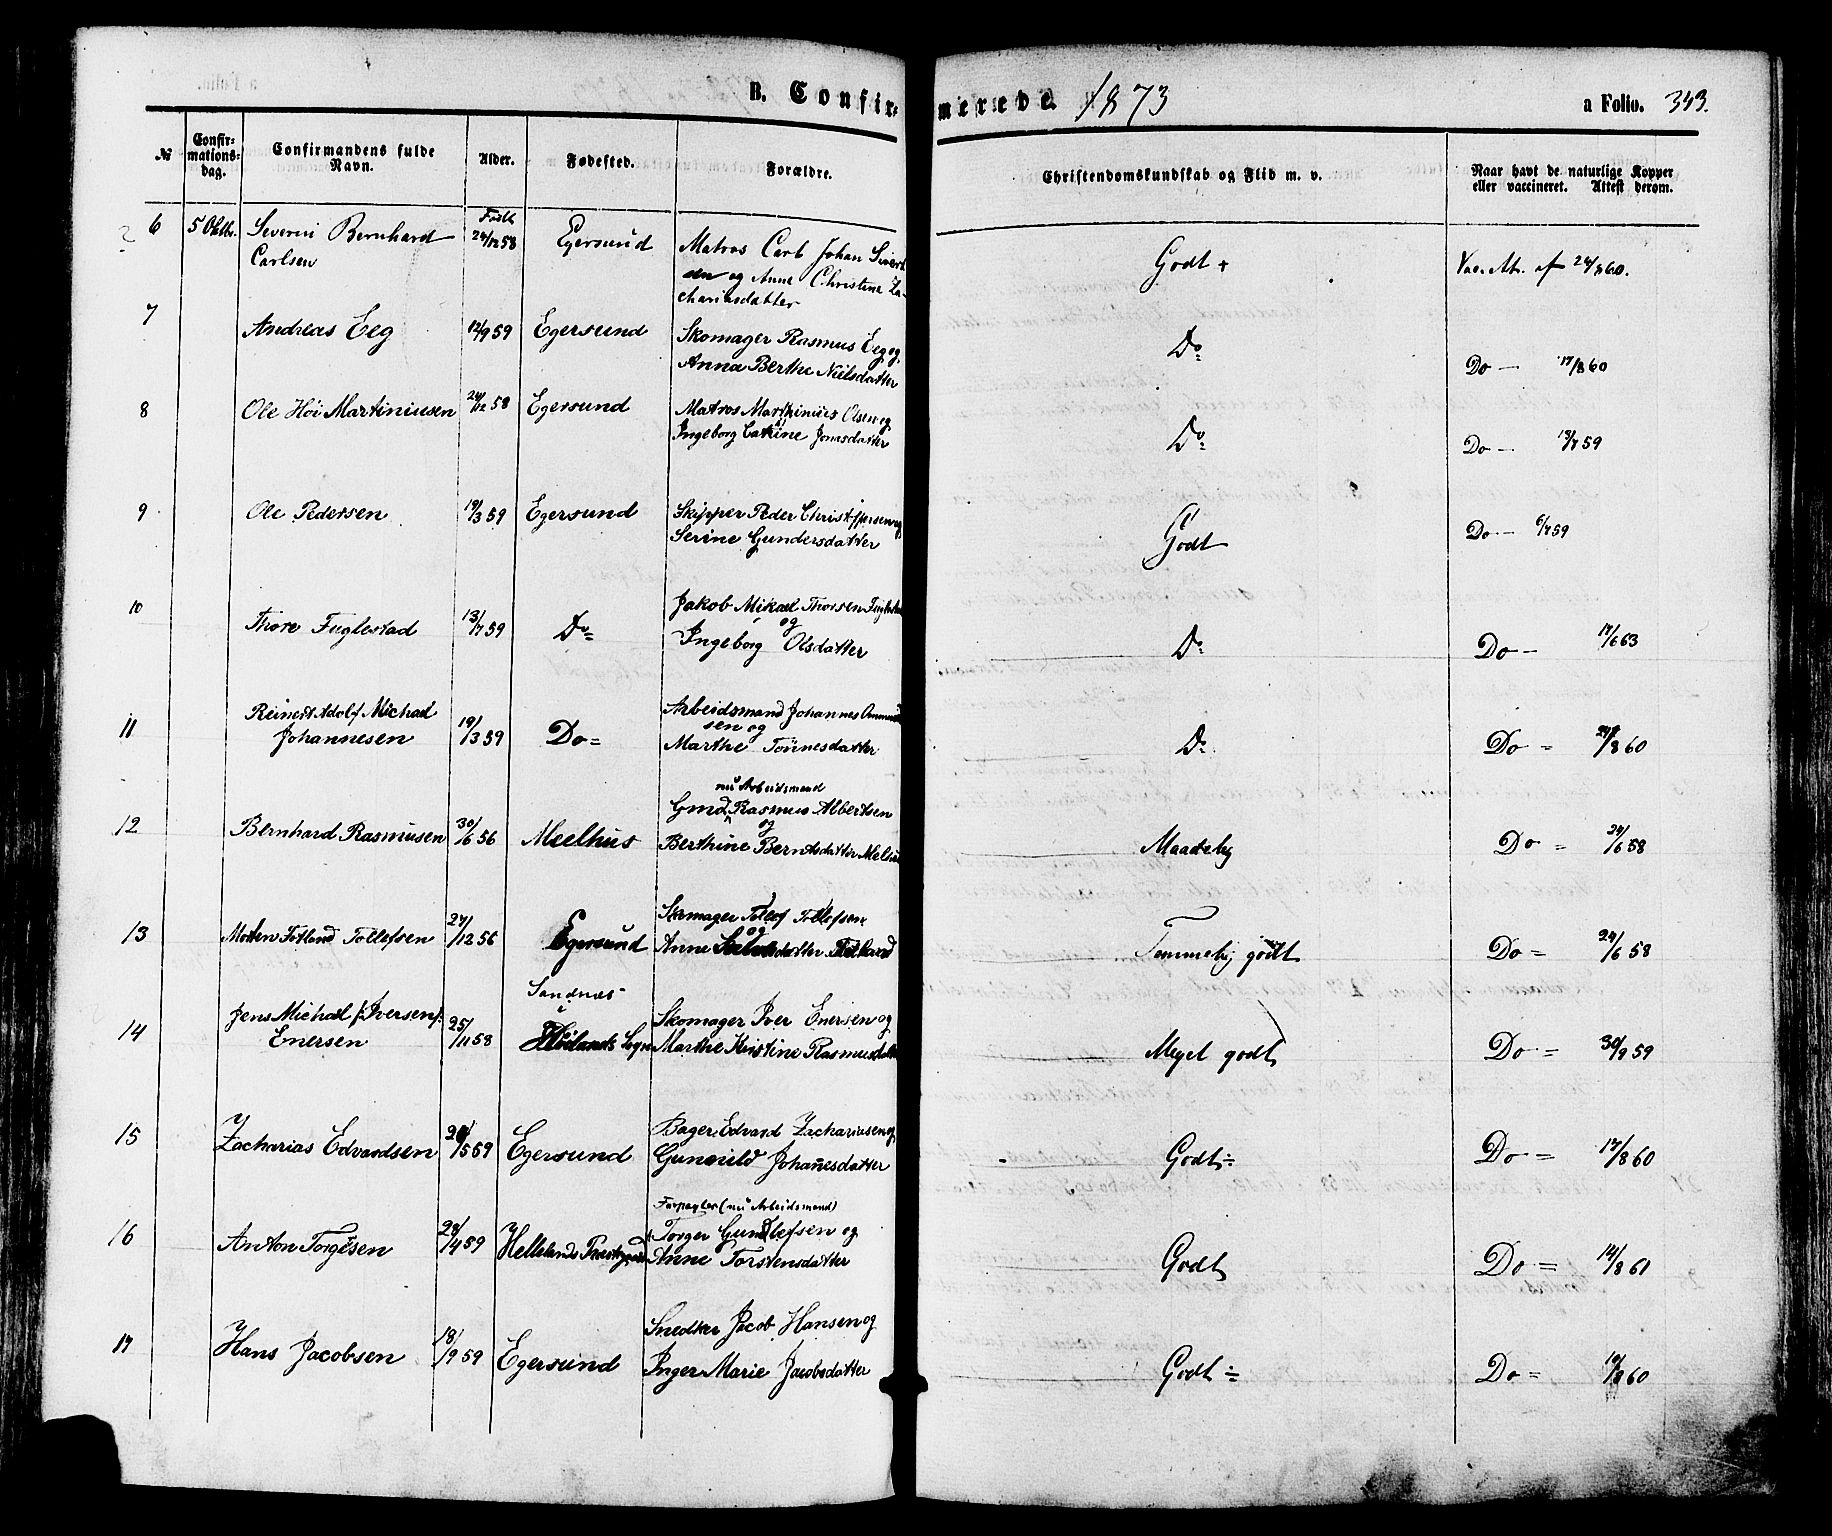 B. Confirmerede. 1873
a Folio. 343.
№ Confirmations-dag. Confirmandens fulde Navn. Alder. Fødested. Forældre. Christendomskundskab og Flid m. v. Naar havt de naturlige Kopper eller vaccineret. Attest derom.
6 5 Oktbr. Severin Bernhard Født 24/12 58 Egersund Matros Carl Johan Sivert
Carlsen sen og Anne Christine Za- Godt + Vac. At. af 24/8 60.
chariasdatter
7 Andreas Eeg 12/9 59 Egersund Skomager Rasmus Eeg og Do
Anna Berthe Nielsdatter Do — 17/8 60
8 Ole Höi Martiniusen 24/12 58 Egersund Matros Marthinius Olsen og
Ingeborg Catrine Jonasdatter Do Do — 13/7 59
9 Ole Pedersen 19/3 59 Egersund Skipper Peder Christoffersen og
Serine Gundersdatter Godt Do — 6/7 59
10 Thore Fuglestad 13/7 59 Do Jakob Mikael Thorsen Fuglestad
og
Ingeborg Olsdatter Do Do — 17/6 63
11 Reinert Adolf Michael Arbeidsmand Johannes Ommund
Johannesen 19/3 59 Do sen og
Marthe Tönnesdatter Do Do = 24/8 60
nu Arbeidsmand
12 Bernhard Rasmusen 30/6 56 Meelhus Gmd. Rasmus Albertsen
og
Berthine Berntsdatter Maadelig Do = 24/6 58
13 Morten Fotland Tollefsen 27/12 56 Egersund Skomager Tollef Tollefsen
og
Anne Temmelig godt Do = 24/6 58
Sandnæs
14 Jens Michael /: Iversen :/ 25/11 58 Höilands Sogn Skomager Iver Enersen og
Enersen Marthe Kristine Rasmusdatter Meget godt Do = 30/9 59
15 Zacharias Edvardsen 5 59 Egersund Bager Edvard Zachariasen og
Gunnild Johannesdatter Godt ÷ Do = 17/8 60
Forpagter (nu Arbeidsmand)
16 Anton Torgesen 28/4 59 Hellelands Præstegaard Torger Gundlefsen og
Anne Torstensdatter Godt Do = 14/8 61
17 Hans Jacobsen 18/9 59 Egersund Snedker Jacob Hansen og
Inger Marie Jacobsdatter Godt ÷ Do = 8 60